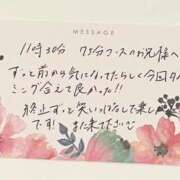 MESSAGE
11時30分 75分コースのお兄様へ
ずっと前から気になってたらしく今回タイ
ミング合えて良かった!!
終止ずっと笑いっぱなしで楽しい
です! また来て下さい